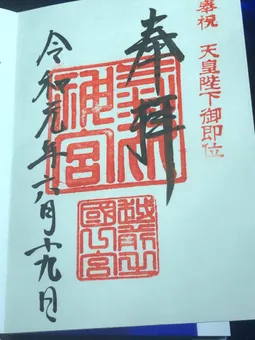 奉祝 天皇陛下御即位
奉拝
氣比
神宮
越前之
國一宮
令和元年六月十九日